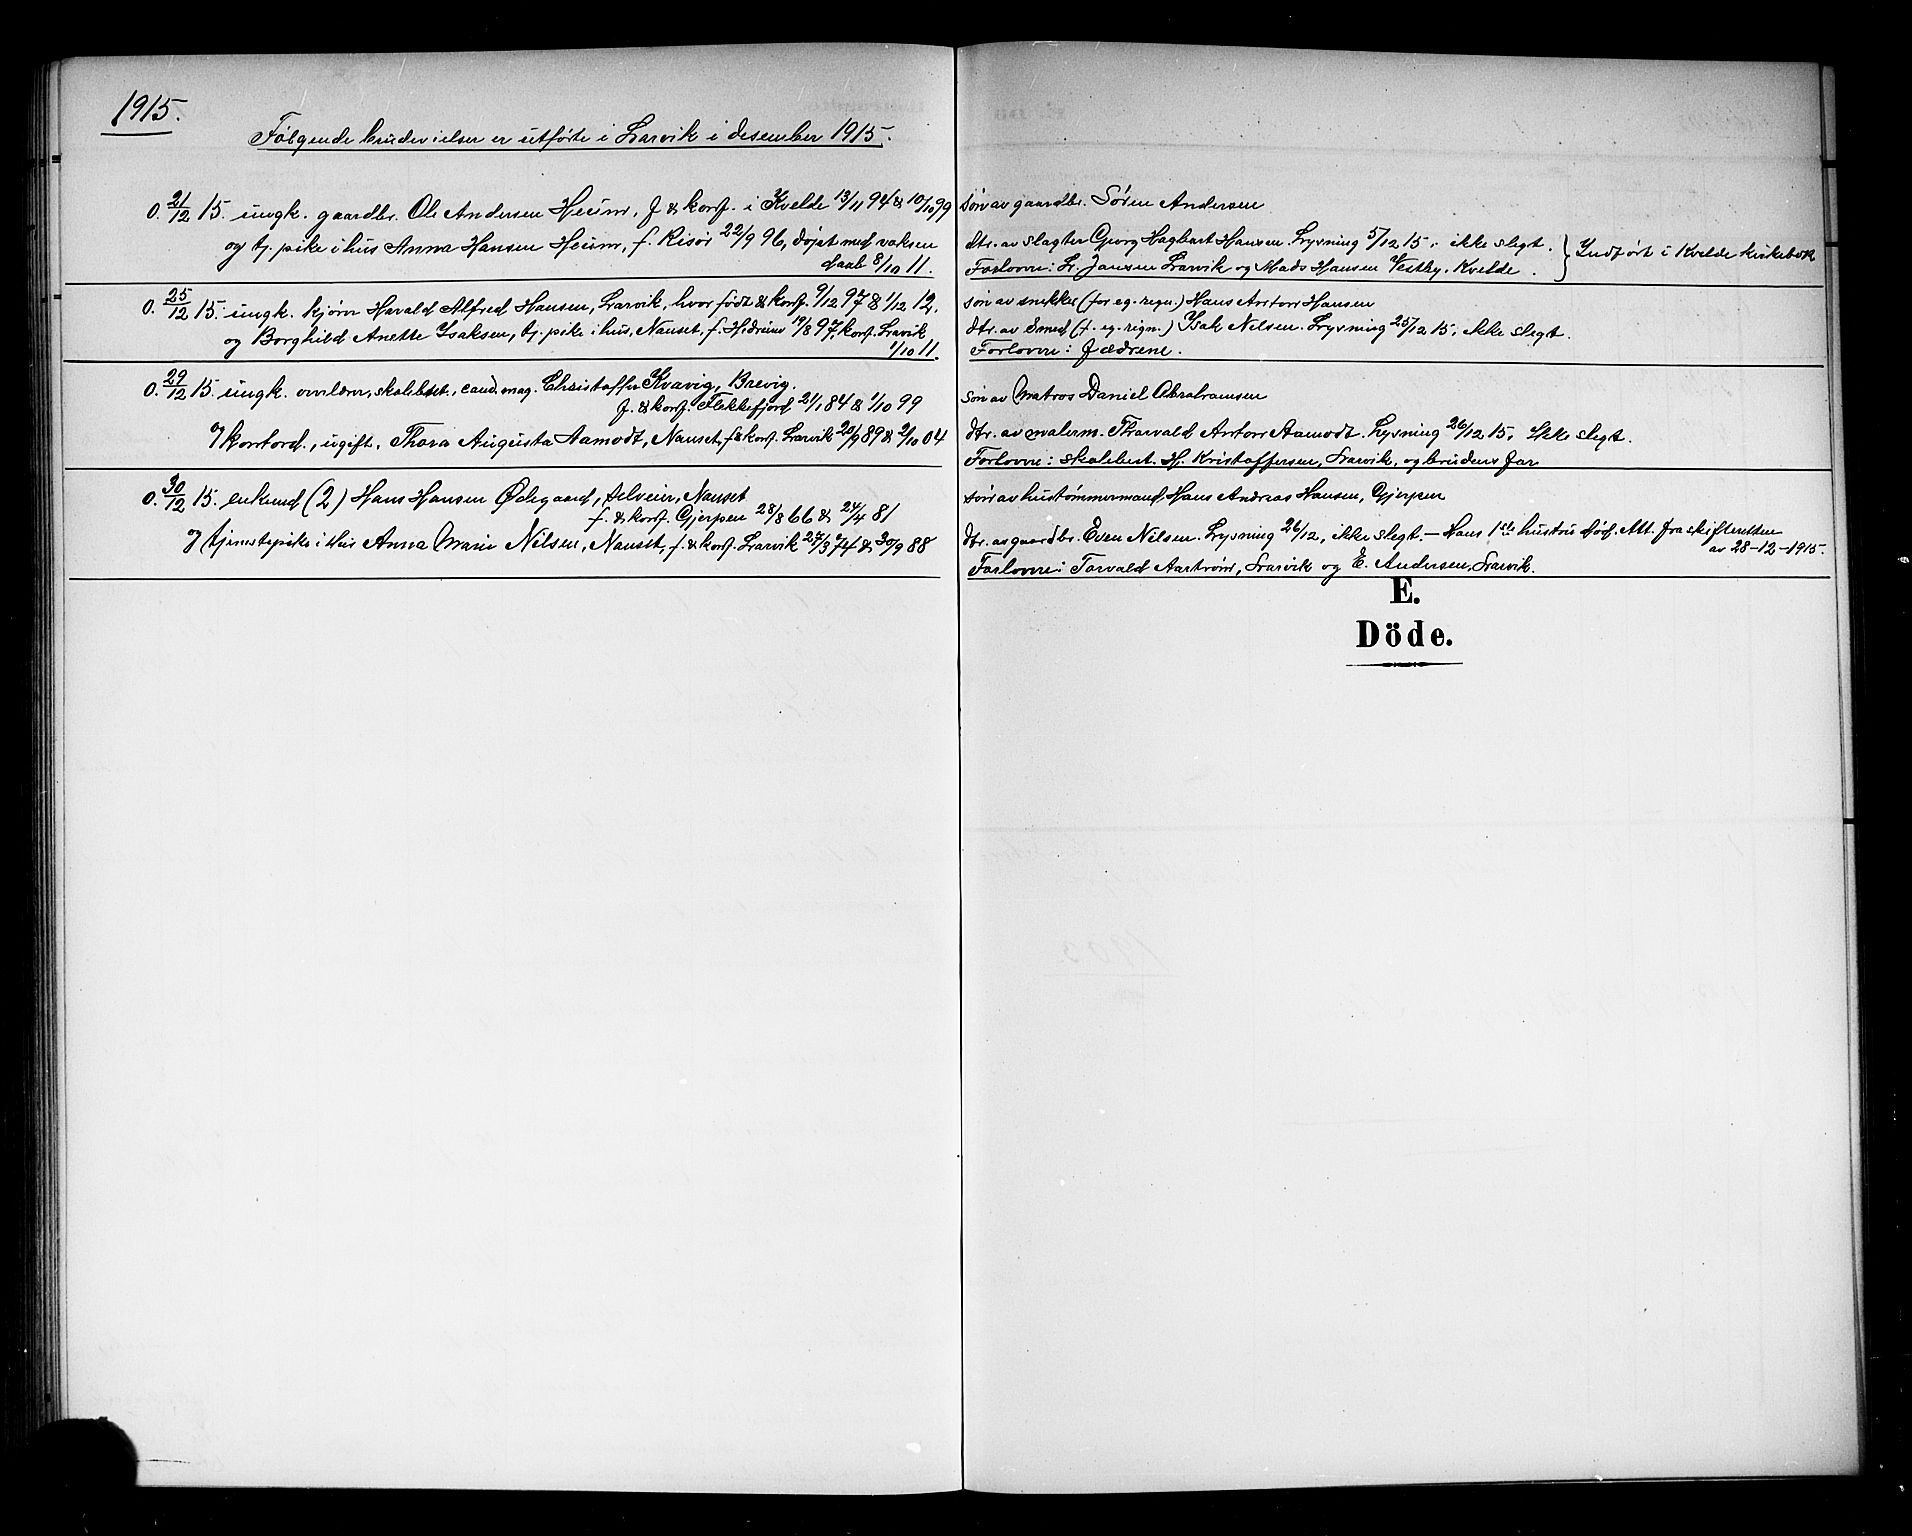 1915.
Følgende brudevielser er utførte i Larvik i desember 1915.
O. 21/12 15. ungk. gaardbr. Ole Andersen Heum, f & konf. i Kvelde 13/11 94 & 10/10 99
og tj. pike i hus Anna Hansen Heum, f. Risør 22/9 96, døpt med voksen
daab 8/10 11.
O. 25/12 15. ungk. kjører Harald Alfred Hansen, Larvik, hvor født & konf. 9/12 97 & 1/12 12.
og Borghild Anette Isaksen, tj. pike i hus, Nanset, f. Hedrum 19/8 97, konf. Larvik
1/10 11.
O. 29/12 15. ungk. overlærer, skolebest., cand. mag. Christoffer Kvavig, Brevig.
f. & konf. Flekkefjord 21/1 84 & 1/10 99
og kontord., ugift, Thora Augusta Aamodt, Nanset, f & konf. Larvik 20/9 89 & 2/10 04
O. 30/12 15. enkemd (2) Hans Hansen Ødegaard, selveier, Nanset
f. & konf. Gjerpen 28/8 66 & 24/4 81
og tjenestepike i hus Anna Marie Nilsen, Nanset, f. & konf. Larvik 27/3 74 & 30/9 88
søn av gaardbr. Søren Andersen
dtr. av slagter Georg Hagbart Hansen. Lysning 5/12 15, ikke slegt. } Indført i Kvelde kirkebok
Forlovere: L. Jansen Larvik og Mads Hansen Vestby, Kvelde.
søn av snekker (for eg. regn.) Hans Anton Hansen
dtr. av Smed (f. eg. regn.) Isak Nilsen. Lysning 25/12 15, ikke slegt.
Forlovere: Fædrene.
søn av Matros Daniel Abrahamsen
dtr. av malerm. Thorvald Anton Aamodt. Lysning 26/12 15, ikke slegt.
Forlovere: Skolebest. H. Kristoffersen, Larvik, og brudens far
søn av hustømmermand Hans Andreas Hansen, Gjerpen
dtr. av gaardbr. Even Nilsen. Lysning 26/12, ikke slegt. – Hans 1ste hustru død. Att. fra skifteretten
av 28-12-1915.
Forlovere: Torvald Aarstrøm, Larvik og E. Andersen, Larvik.
E.
Döde.